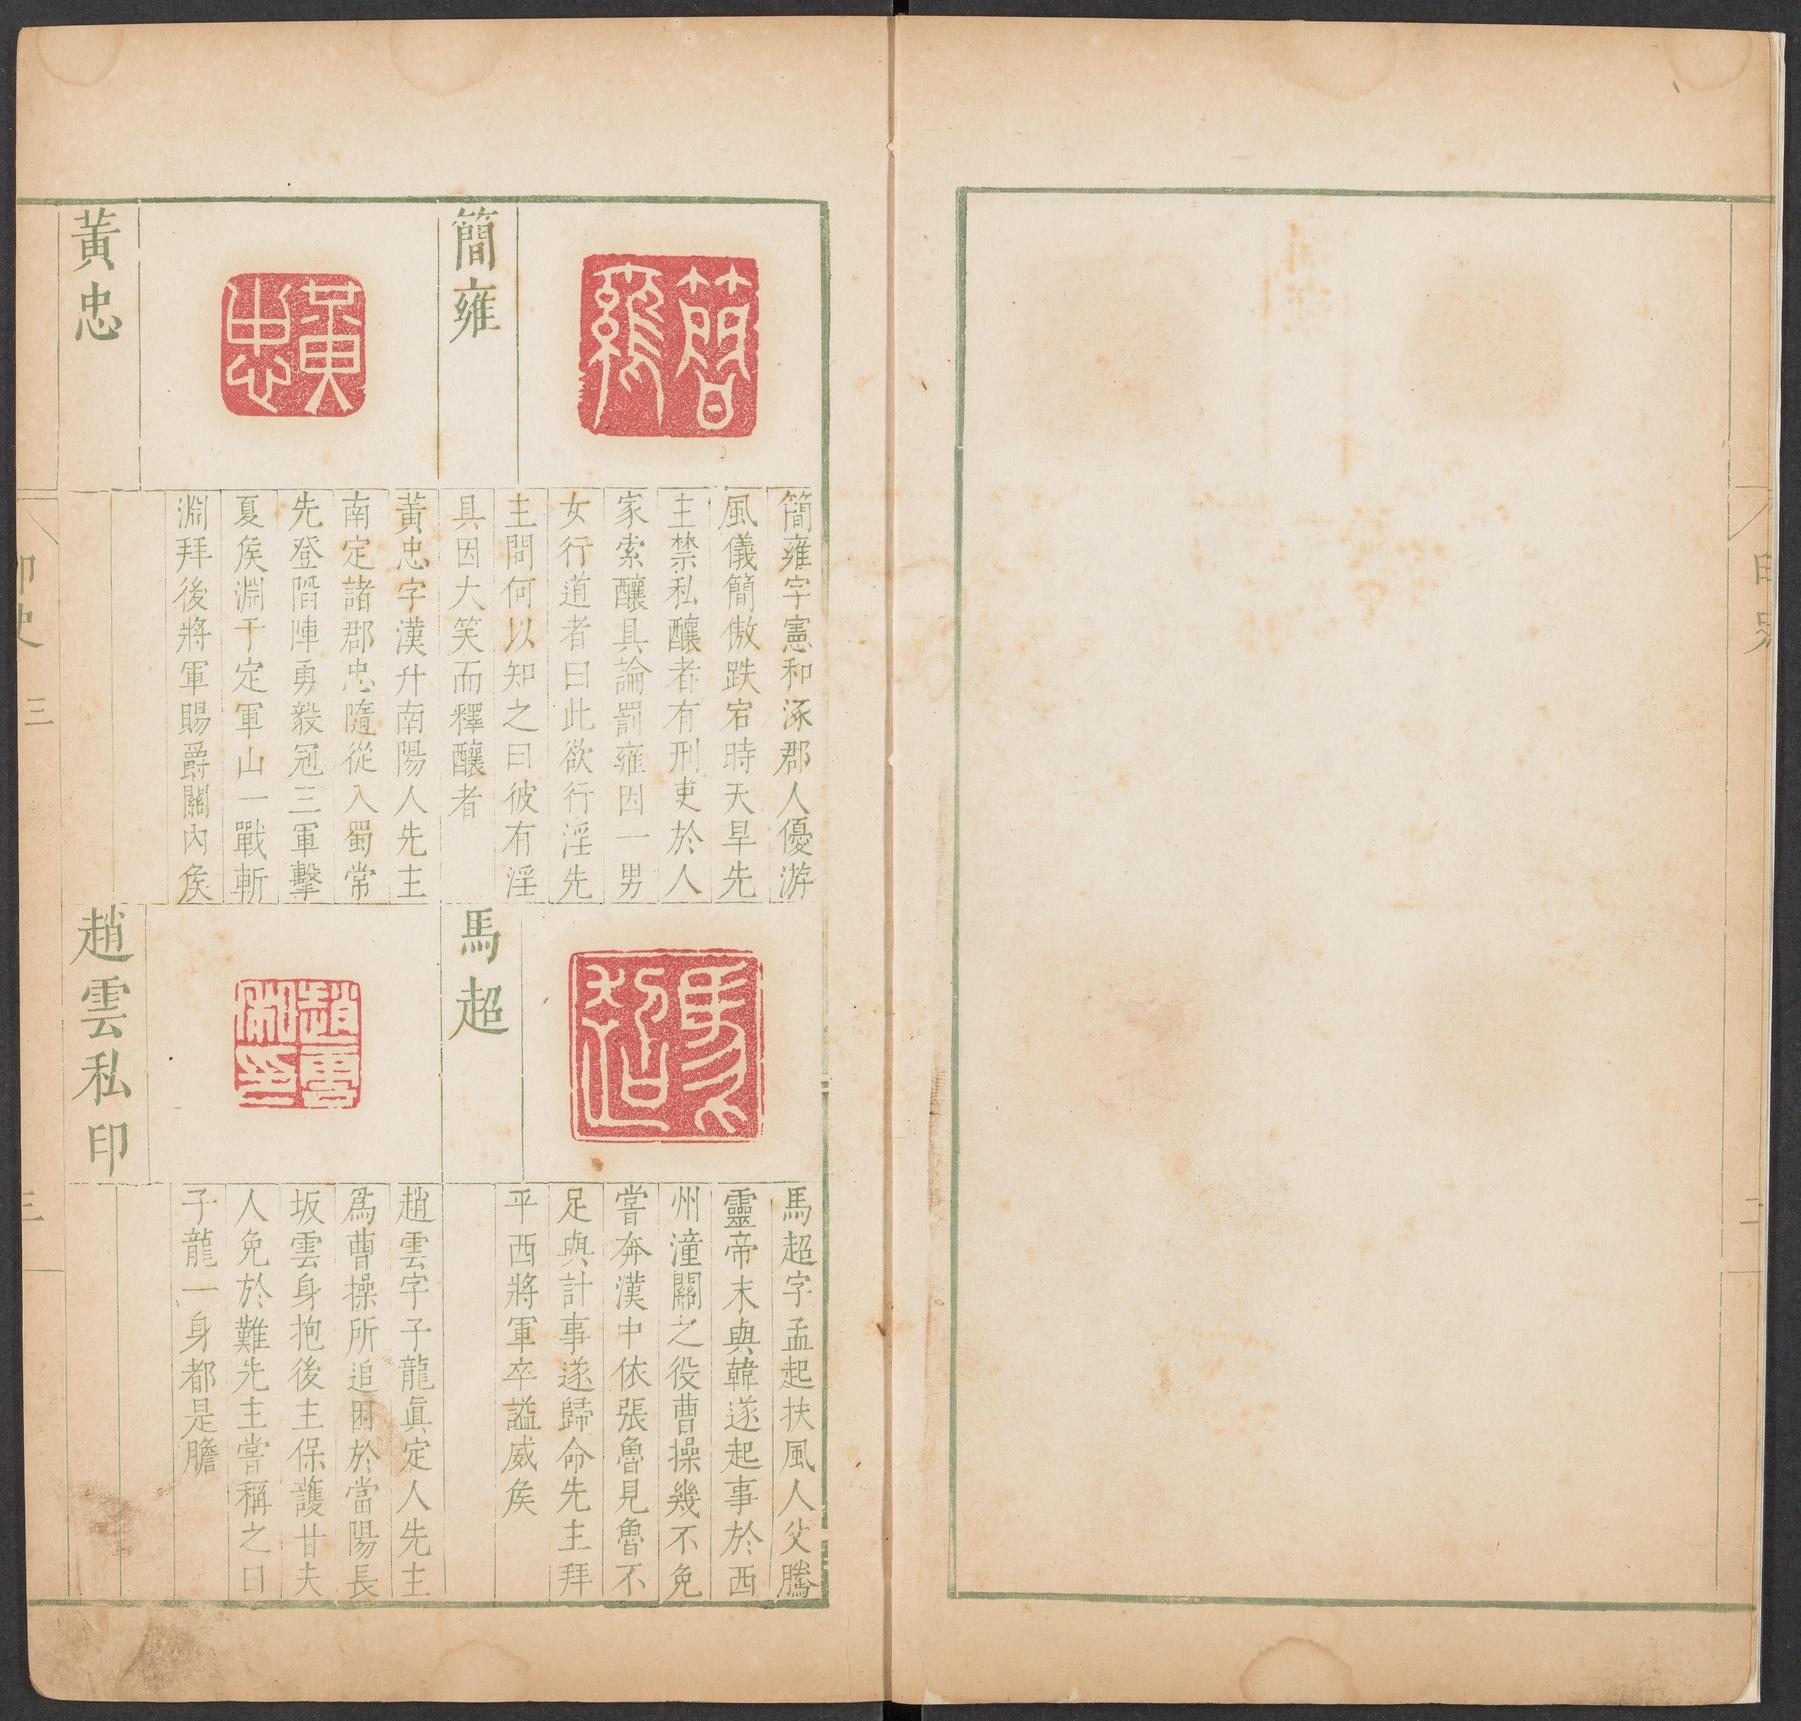 印史
二
簡雍
簡雍
簡雍字憲和涿郡人優游
風儀簡傲跌宕時天旱先
主禁私釀者有刑吏於人
家索釀具論罰雍因一男
女行道者曰此欲行淫先
主問何以知之曰彼有淫
具因大笑而釋釀者
黃忠
黃忠
黃忠字漢升南陽人先主
南定諸郡忠隨從入蜀常
先登陷陣勇毅冠三軍擊
夏侯淵于定軍山一戰斬
淵拜後將軍賜爵關內侯
馬超
馬超
馬超字孟起扶風人父騰
靈帝末與韓遂起事於西
州潼關之役曹操幾不免
嘗奔漢中依張魯見魯不
足與計事遂歸命先主拜
平西將軍卒謚威侯
趙雲私印
趙雲私印
趙雲字子龍眞定人先主
爲曹操所追困於當陽長
坂雲身抱後主保護甘夫
人免於難先主嘗稱之曰
子龍一身都是膽
印史
三
三